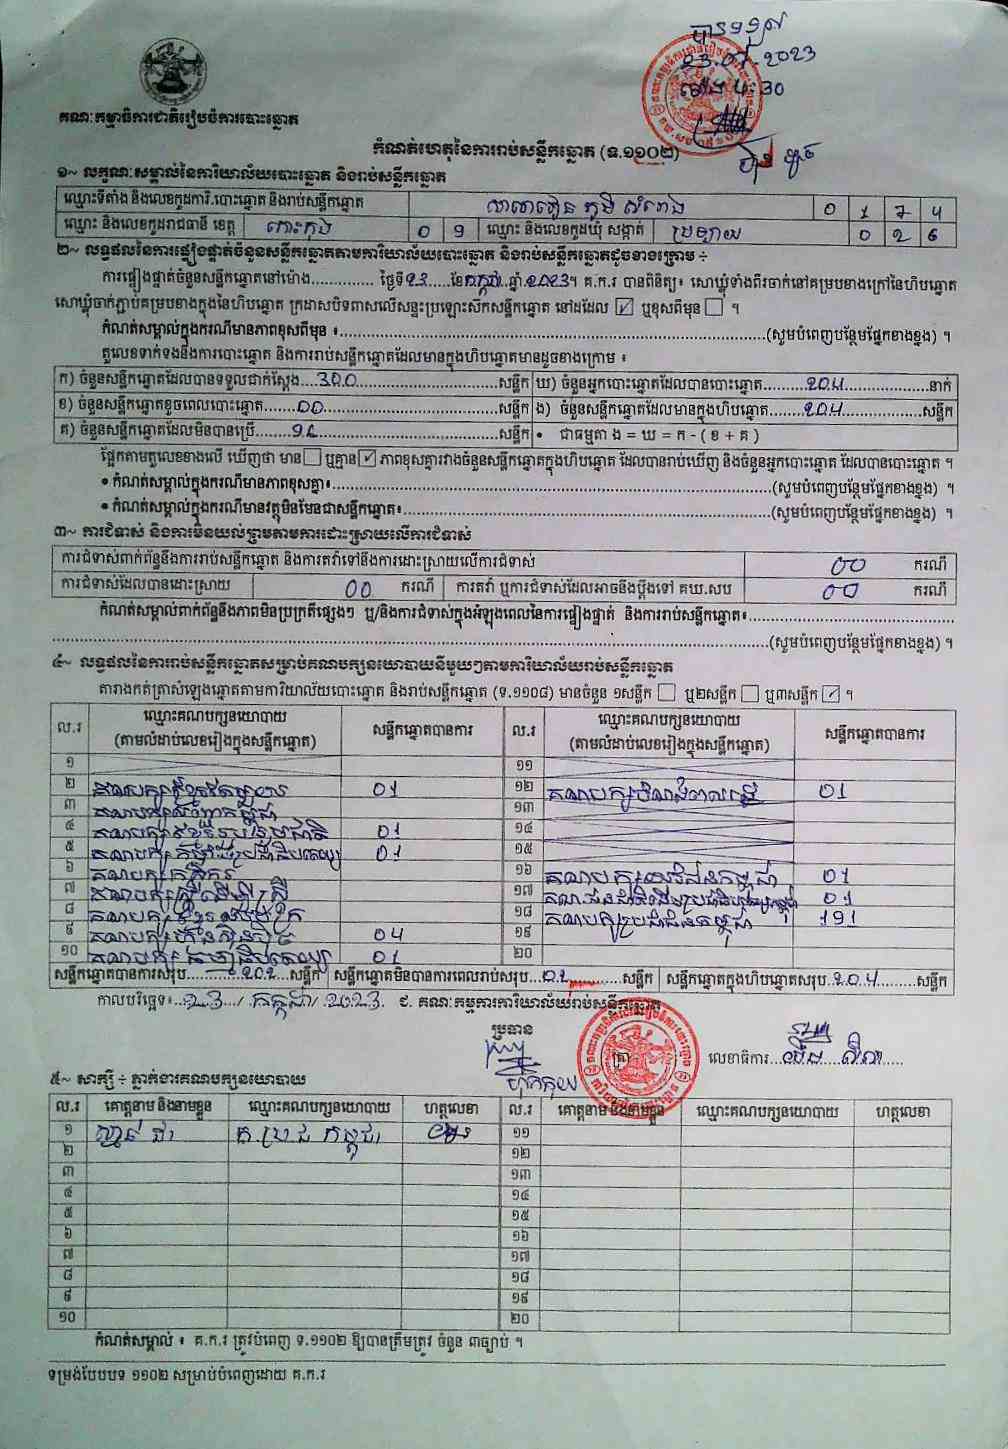 23.07.2023
4:30
គណៈកម្មាធិការជាតិរៀបចំការបោះឆ្នោត
កំណត់ហេតុនៃការរាប់សន្លឹកឆ្នោត (ទ.១១០២)
១~ លក្ខណៈសម្គាល់នៃការិយាល័យបោះឆ្នោត និងរាប់សន្លឹកឆ្នោត
ឈ្មោះទីតាំង និងលេខកូដការិ.បោះឆ្នោត និងរាប់សន្លឹកឆ្នោត ភូមិ 0 1 7 4
ឈ្មោះ និងលេខកូដរាជធានី ខេត្ត កោះកុង 0 9 ឈ្មោះ និងលេខកូដឃុំ សង្កាត់ ប្រឡាយ 0 2 6
២~ លទ្ធផលនៃការផ្ទៀងផ្ទាត់ចំនួនសន្លឹកឆ្នោតតាមការិយាល័យបោះឆ្នោត និងរាប់សន្លឹកឆ្នោតដូចខាងក្រោម ÷
ការផ្ទៀងផ្ទាត់ចំនួនសន្លឹកឆ្នោតនៅម៉ោង.............. ថ្ងៃទី23.....ខែកក្កដា..ឆ្នាំ.2023។ គ.ក.រ បានពិនិត្យ៖ សោឃ្លុំទាំងពីរចាក់នៅគម្របខាងក្រៅនៃហិបឆ្នោត
សោឃ្លុំចាក់ភ្ជាប់គម្របខាងក្នុងនៃហិបឆ្នោត ក្រដាសបិទពាសលើសន្ទះប្រឡោះស៊កសន្លឹកឆ្នោត នៅដដែល ☑ ឬខុសពីមុន ☐ ។
កំណត់សម្គាល់ក្នុងករណីមានភាពខុសពីមុន ៖..............(សូមបំពេញបន្ថែមផ្នែកខាងខ្នង) ។
តួលេខទាក់ទងនឹងការបោះឆ្នោត និងការរាប់សន្លឹកឆ្នោតដែលមានក្នុងហិបឆ្នោតមានដូចខាងក្រោម ៖
ក) ចំនួនសន្លឹកឆ្នោតដែលបានទទួលជាក់ស្តែង...300..............សន្លឹក ឃ) ចំនួនអ្នកបោះឆ្នោតដែលបានបោះឆ្នោត..........204..............នាក់
ខ) ចំនួនសន្លឹកឆ្នោតខូចពេលបោះឆ្នោត.......00..............សន្លឹក ង) ចំនួនសន្លឹកឆ្នោតដែលមានក្នុងហិបឆ្នោត........204..............សន្លឹក
គ) ចំនួនសន្លឹកឆ្នោតដែលមិនបានប្រើ.......96..............សន្លឹក • ជាធម្មតា ង = ឃ = ក - ( ខ + គ )
ផ្អែកតាមតួលេខខាងលើ ឃើញថា មាន ☐ ឬគ្មាន ☑ ភាពខុសគ្នារវាងចំនួនសន្លឹកឆ្នោតក្នុងហិបឆ្នោត ដែលបានរាប់ឃើញ និងចំនួនអ្នកបោះឆ្នោត ដែលបានបោះឆ្នោត ។
• កំណត់សម្គាល់ក្នុងករណីមានភាពខុសគ្នា៖..............(សូមបំពេញបន្ថែមផ្នែកខាងខ្នង) ។
• កំណត់សម្គាល់ក្នុងករណីមានវត្ថុមិនមែនជាសន្លឹកឆ្នោត៖..............(សូមបំពេញបន្ថែមផ្នែកខាងខ្នង) ។
៣~ ការជំទាស់ និងការមិនយល់ព្រមតាមការដោះស្រាយលើការជំទាស់
ការជំទាស់ពាក់ព័ន្ធនឹងការរាប់សន្លឹកឆ្នោត និងការតវ៉ាទៅនឹងការដោះស្រាយលើការជំទាស់ 00 ករណី
ការជំទាស់ដែលបានដោះស្រាយ 00 ករណី ការតវ៉ា ឬការជំទាស់ដែលអាចនឹងប្តឹងទៅ គឃ.សប 00 ករណី
កំណត់សម្គាល់ពាក់ព័ន្ធនឹងភាពមិនប្រក្រតីផ្សេងៗ ឬ/និងការជំទាស់ក្នុងអំឡុងពេលនៃការផ្ទៀងផ្ទាត់ និងការរាប់សន្លឹកឆ្នោត៖..............
..............(សូមបំពេញបន្ថែមផ្នែកខាងខ្នង) ។
៤~ លទ្ធផលនៃការរាប់សន្លឹកឆ្នោតសម្រាប់គណបក្សនយោបាយនីមួយៗតាមការិយាល័យរាប់សន្លឹកឆ្នោត
តារាងកត់ត្រាសំឡេងឆ្នោតតាមការិយាល័យបោះឆ្នោត និងរាប់សន្លឹកឆ្នោត (ទ.១១០៨) មានចំនួន ១សន្លឹក ☐ ឬ២សន្លឹក ☐ ឬ៣សន្លឹក ☑ ។
ល.រ ឈ្មោះគណបក្សនយោបាយ (តាមលំដាប់លេខរៀងក្នុងសន្លឹកឆ្នោត) សន្លឹកឆ្នោតបានការ ល.រ ឈ្មោះគណបក្សនយោបាយ (តាមលំដាប់លេខរៀងក្នុងសន្លឹកឆ្នោត) សន្លឹកឆ្នោតបានការ
១ ១១
២ 01 ១២ 01
៣ ១៣
៤ 01 ១៤
៥ គណបក្សកម្លាំងប្រជាធិបតេយ្យ 01 ១៥
៦ គណបក្សកសិករ ១៦ 01
៧ គណបក្សស្ត្រីដើម្បីស្ត្រី ១៧ 01
៨ ១៨ គណបក្សប្រជាជនកម្ពុជា 191
៩ គណបក្សហ៊្វុនស៊ិនប៉ិច 04 ១៩
១០ 01 ២០
សន្លឹកឆ្នោតបានការសរុប..............202......សន្លឹក សន្លឹកឆ្នោតមិនបានការពេលរាប់សរុប...02..............សន្លឹក សន្លឹកឆ្នោតក្នុងហិបឆ្នោតសរុប..204..........សន្លឹក
កាលបរិច្ឆេទ៖...23..../ កក្កដា/ 2023. ជ. គណៈកម្មការការិយាល័យរាប់សន្លឹកឆ្នោត
ប្រធាន
ត្រា លេខាធិការ
៥~ សាក្សី ÷ ភ្នាក់ងារគណបក្សនយោបាយ
ល.រ គោត្តនាម និងនាមខ្លួន ឈ្មោះគណបក្សនយោបាយ ហត្ថលេខា ល.រ គោត្តនាម និងនាមខ្លួន ឈ្មោះគណបក្សនយោបាយ ហត្ថលេខា
១ គ.ប្រ.ជ កម្ពុជា ១១
២ ១២
៣ ១៣
៤ ១៤
៥ ១៥
៦ ១៦
៧ ១៧
៨ ១៨
៩ ១៩
១០ ២០
កំណត់សម្គាល់ ៖ គ.ក.រ ត្រូវបំពេញ ទ.១១០២ ឱ្យបានត្រឹមត្រូវ ចំនួន ៣ច្បាប់ ។
ទម្រង់បែបបទ ១១០២ សម្រាប់បំពេញដោយ គ.ក.រ